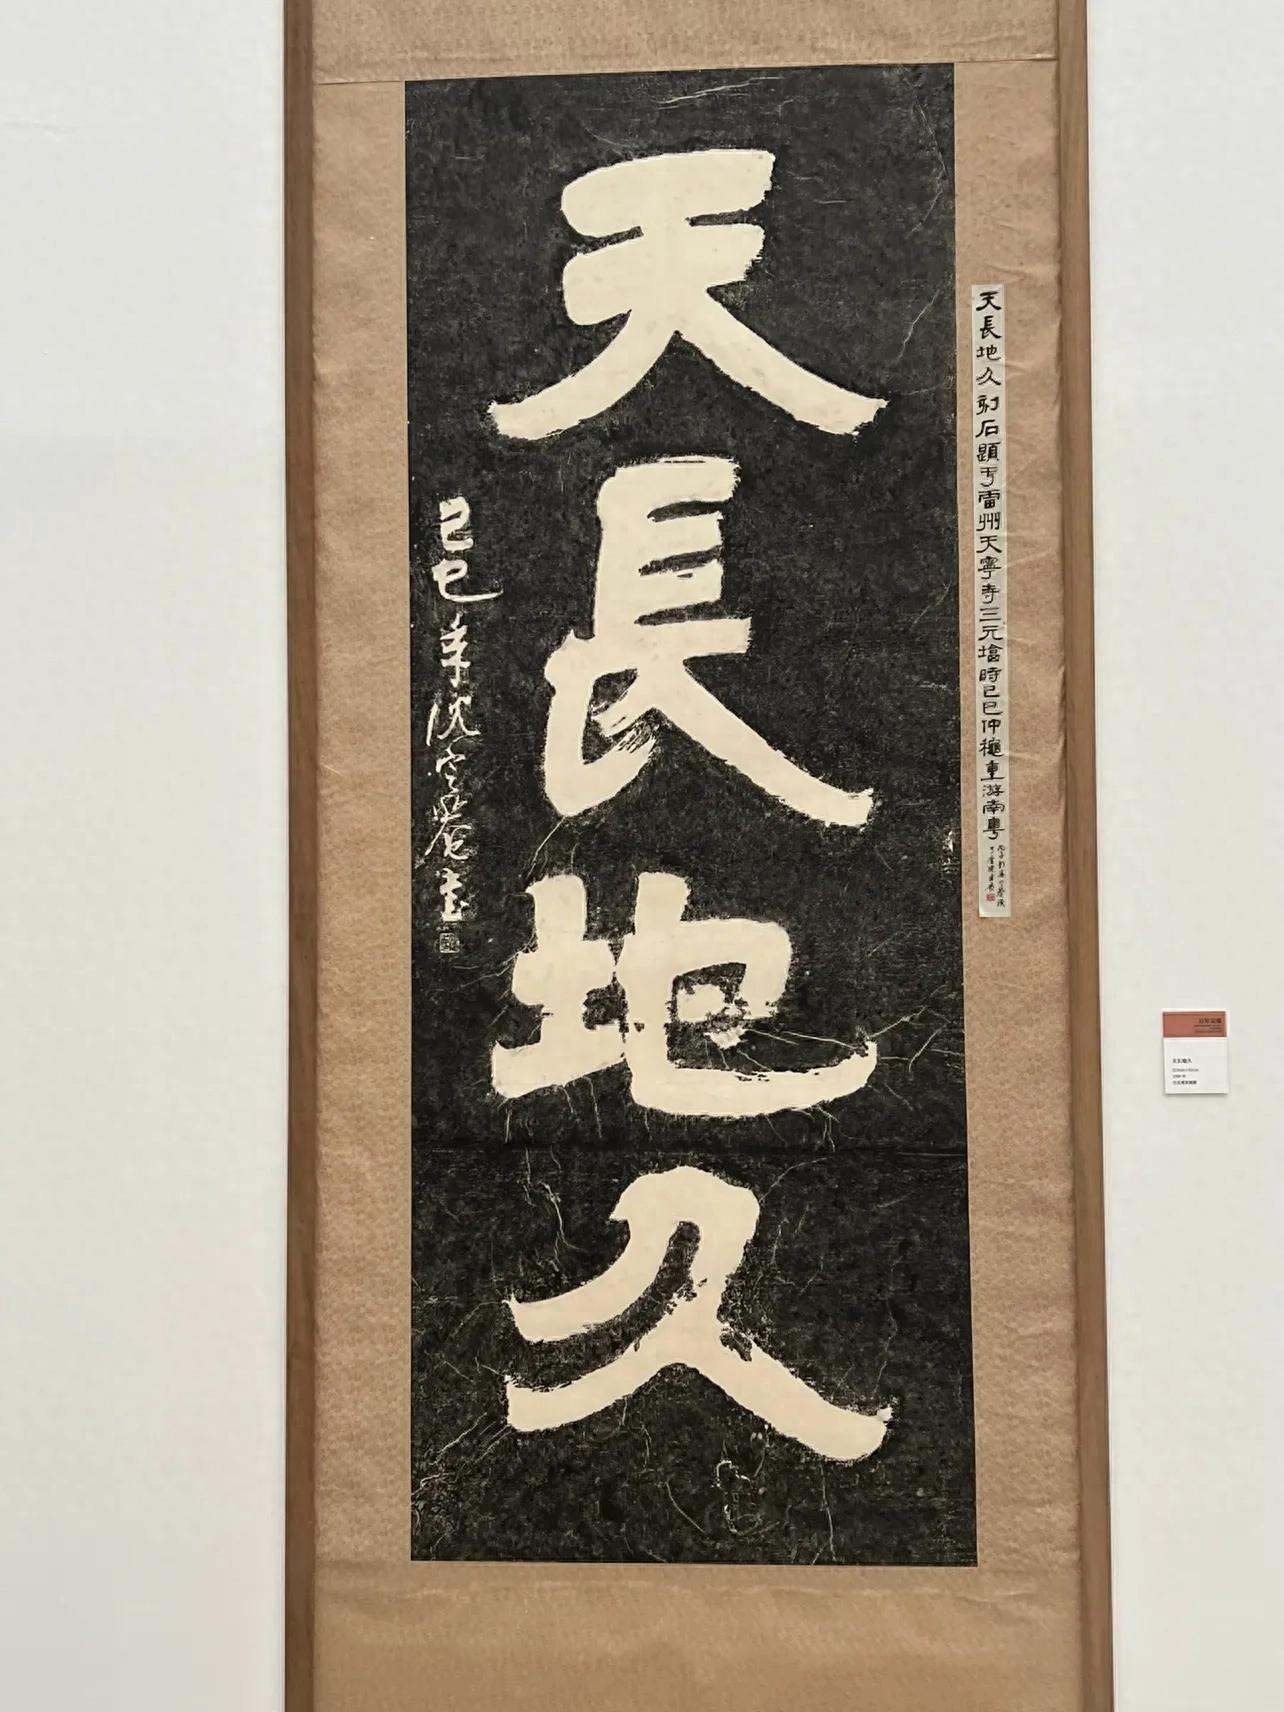 天長地久
己巳年沈定菴書
天長地久刻石題于雷州天寧寺三元塔時己巳仲穐重游南粵
天长地久